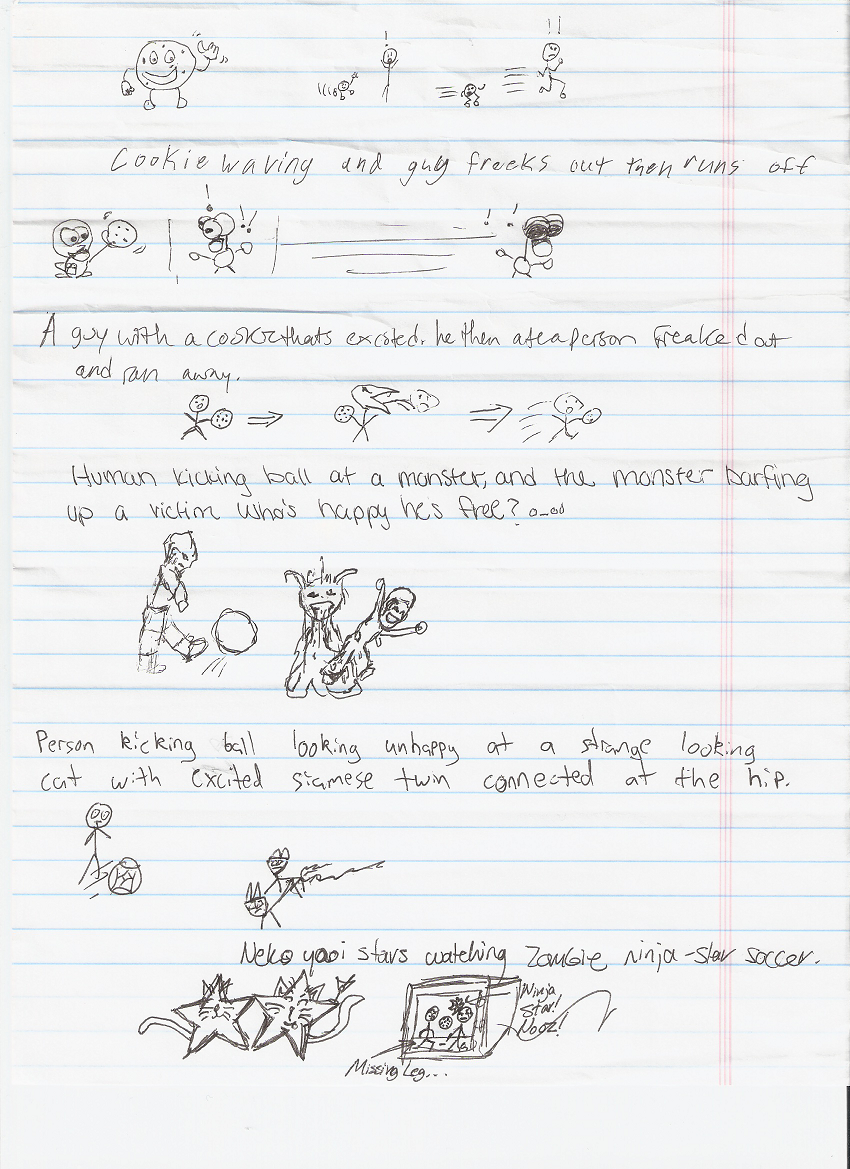 !
!!
Cookie waving and guy freeks out then runs off
! ! !
! !
A guy with a cookie thats excited. he then ate a person Freaked out
and ran away.
Human kicking ball at a monster, and the monster barfing
up a victim who's happy he's free? o_oo
Person kicking ball looking unhappy at a strange looking
cat with excited siamese twin connected at the hip.
Neko yaoi stars watching Zombie ninja-star soccer.
Ninja
Star!
Nooz!
Missing Leg...